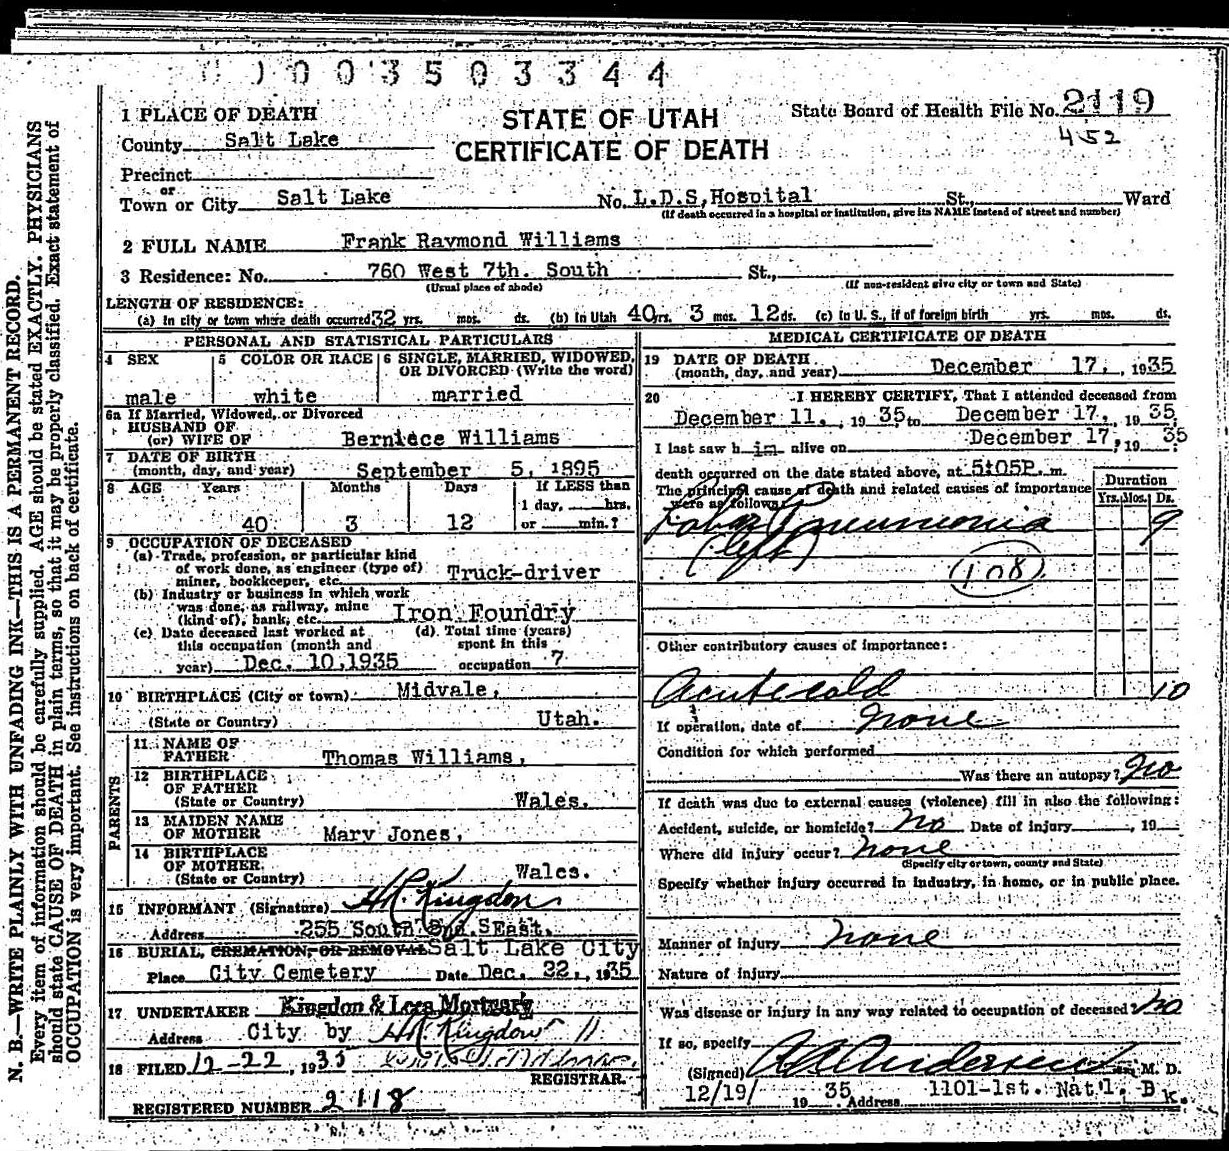 0003503344
STATE OF UTAH
CERTIFICATE OF DEATH
State Board of Health File No. 2119
452
1 PLACE OF DEATH
County Salt Lake
Precinct
or
Town or City Salt Lake No. L.D.S, Hospital St., Ward
(If death occurred in a hospital or institution, give its NAME instead of street and number)
2 FULL NAME Frank Raymond Williams
3 Residence: No. 760 West 7th. South St.,
(Usual place of abode) (If non-resident give city or town and State)
LENGTH OF RESIDENCE:
(a) In city or town where death occurred 32 yrs. mos. ds. (b) In Utah 40 yrs. 3 mos. 12 ds. (c) In U. S., if of foreign birth yrs. mos. ds.
PERSONAL AND STATISTICAL PARTICULARS
4 SEX 5 COLOR OR RACE 6 SINGLE, MARRIED, WIDOWED,
OR DIVORCED (Write the word)
male white married
6a If Married, Widowed, or Divorced
HUSBAND OF
(or) WIFE OF Berniece Williams
7 DATE OF BIRTH
(month, day, and year) September 5, 1895
8 AGE Years Months Days If LESS than
1 day, hrs.
40 3 12 or min.?
9 OCCUPATION OF DECEASED
(a) Trade, profession, or particular kind
of work done, as engineer (type of)
miner, bookkeeper, etc. Truck-driver
(b) Industry or business in which work
was done, as railway, mine
(kind of), bank, etc. Iron Foundry
(c) Date deceased last worked at (d) Total time (years)
this occupation (month and spent in this
year) Dec. 10, 1935 occupation 7
10 BIRTHPLACE (City or town) Midvale,
(State or Country) Utah.
PARENTS
11 NAME OF
FATHER Thomas Williams,
12 BIRTHPLACE
OF FATHER
(State or Country) Wales.
13 MAIDEN NAME
OF MOTHER Mary Jones,
14 BIRTHPLACE
OF MOTHER
(State or Country) Wales.
15 INFORMANT (Signature) H.R. Kingdon
Address 255 South 2nd. SEast.
16 BURIAL, CREMATION, OR REMOVAL Salt Lake City
Place City Cemetery Date Dec. 22, 1935
17 UNDERTAKER Kingdon & Mortuary
Address City by H.R. Kingdon
18 FILED 12-22, 1935
REGISTRAR.
REGISTERED NUMBER 2118
MEDICAL CERTIFICATE OF DEATH
19 DATE OF DEATH
(month, day, and year) December 17, 1935
20 I HEREBY CERTIFY, That I attended deceased from
December 11, 1935 to December 17, 1935
I last saw h im alive on December 17, 1935
death occurred on the date stated above, at 5:05P. m.
The principal cause of death and related causes of importance
were as follows:
Duration
Yrs. Mos. Ds.
Lobar Pneumonia 9
(left)
(108)
Other contributory causes of importance:
Acute cold 10
If operation, date of none
Condition for which performed
Was there an autopsy? No
If death was due to external causes (violence) fill in also the following:
Accident, suicide, or homicide? No Date of injury , 19
Where did injury occur? none
(Specify city or town, county and State)
Specify whether injury occurred in industry, in home, or in public place.
Manner of injury none
Nature of injury
Was disease or injury in any way related to occupation of deceased? No
If so, specify
(Signed) Anderson M. D.
12/19/ 1935 Address 1101-1st. Nat'l. Bk.
N. B.—WRITE PLAINLY WITH UNFADING INK—THIS IS A PERMANENT RECORD.
Every item of information should be carefully supplied. AGE should be stated EXACTLY. PHYSICIANS
should state CAUSE OF DEATH in plain terms, so that it may be properly classified. Exact statement of
OCCUPATION is very important. See instructions on back of certificate.